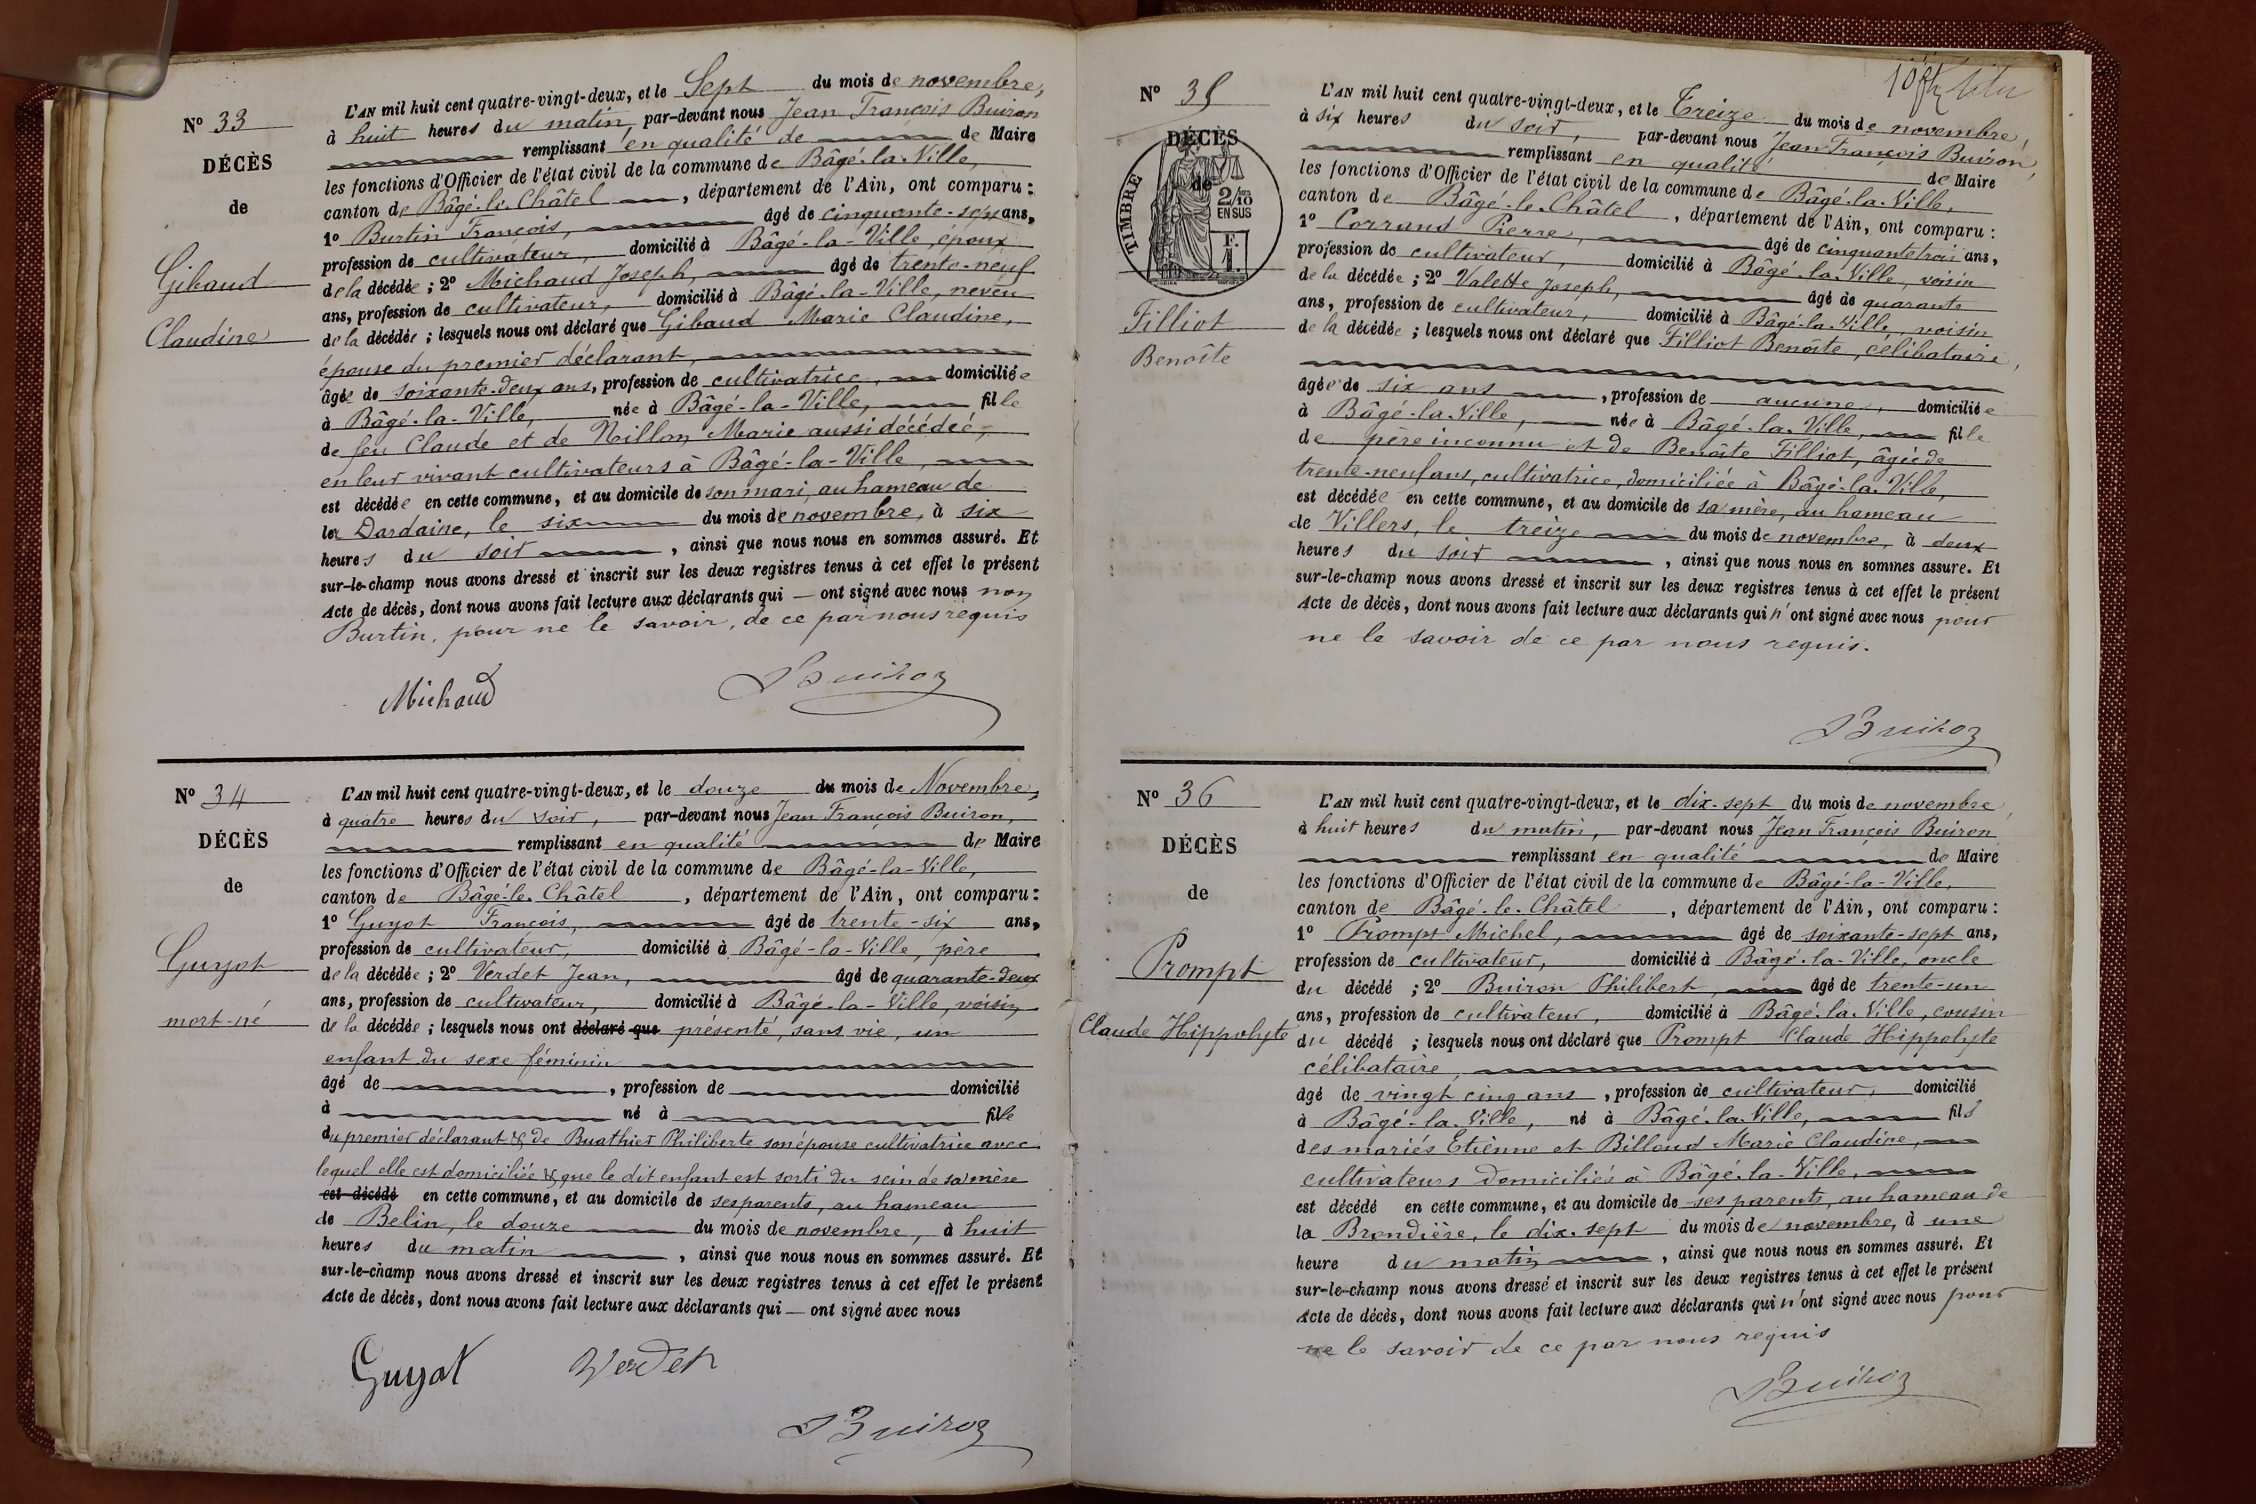 N° 33
DÉCÈS
de
Gibaud
Claudine
L'AN mil huit cent quatre-vingt-deux, et le Sept du mois de novembre,
à huit heures du matin, par-devant nous Jean François Buiron
remplissant en qualité de de Maire
les fonctions d'Officier de l'état civil de la commune de Bâgé-la-Ville,
canton de Bâgé-le-Châtel, département de l'Ain, ont comparu :
1° Burtin François, âgé de cinquante-sept ans,
profession de cultivateur, domicilié à Bâgé-la-Ville, époux
de la décédée ; 2° Michaud Joseph, âgé de trente-neuf
ans, profession de cultivateur, domicilié à Bâgé-la-Ville, neveu
de la décédée ; lesquels nous ont déclaré que Gibaud Marie Claudine,
épouse du premier déclarant,
âgée de soixante-deux ans, profession de cultivatrice, domiciliée
à Bâgé-la-Ville, née à Bâgé-la-Ville, fille
de feu Claude et de Nillon Marie aussi décédée,
en leur vivant cultivateurs à Bâgé-la-Ville,
est décédée en cette commune, et au domicile de son mari, au hameau de
la Dardaine, le six du mois de novembre, à six
heures du soir, ainsi que nous nous en sommes assuré. Et
sur-le-champ nous avons dressé et inscrit sur les deux registres tenus à cet effet le présent
Acte de décès, dont nous avons fait lecture aux déclarants qui — ont signé avec nous non
Burtin, pour ne le savoir, de ce par nous requis
Michaud Buiron
N° 34
DÉCÈS
de
Guyot
mort-né
L'AN mil huit cent quatre-vingt-deux, et le douze du mois de Novembre,
à quatre heures du soir, par-devant nous Jean François Buiron,
remplissant en qualité de Maire
les fonctions d'Officier de l'état civil de la commune de Bâgé-la-Ville,
canton de Bâgé-le-Châtel, département de l'Ain, ont comparu :
1° Guyot François, âgé de trente-six ans,
profession de cultivateur, domicilié à Bâgé-la-Ville, père
de la décédée ; 2° Verdet Jean, âgé de quarante-deux
ans, profession de cultivateur, domicilié à Bâgé-la-Ville, voisin
de la décédée ; lesquels nous ont déclaré que présenté, sans vie, un
enfant du sexe féminin
âgé de, profession de domicilié
à né à fille
du premier déclarant & de Buathier Philiberte son épouse cultivatrice avec
lequel elle est domiciliée & que le dit enfant est sorti du sein de sa mère
est décédé en cette commune, et au domicile de ses parents, au hameau
de Belin, le douze du mois de novembre, à huit
heures du matin, ainsi que nous nous en sommes assuré. Et
sur-le-champ nous avons dressé et inscrit sur les deux registres tenus à cet effet le présent
Acte de décès, dont nous avons fait lecture aux déclarants qui — ont signé avec nous
Guyot Verdet
Buiron
N° 35
DÉCÈS
de
TIMBRE
2/10
EN SUS
F.
1
Filliot
Benoîte
L'AN mil huit cent quatre-vingt-deux, et le Treize du mois de novembre,
à six heures du soir, par-devant nous Jean François Buiron,
remplissant en qualité de Maire
les fonctions d'Officier de l'état civil de la commune de Bâgé-la-Ville,
canton de Bâgé-le-Châtel, département de l'Ain, ont comparu :
1° Corrand Pierre, âgé de cinquante trois ans,
profession de cultivateur, domicilié à Bâgé-la-Ville, voisin
de la décédée ; 2° Valette Joseph, âgé de quarante
ans, profession de cultivateur, domicilié à Bâgé-la-Ville, voisin
de la décédée ; lesquels nous ont déclaré que Filliot Benoîte, célibataire,
âgée de six ans, profession de aucune, domiciliée
à Bâgé-la-Ville, née à Bâgé-la-Ville, fille
de père inconnu et de Benoîte Filliot, âgée de
trente-neuf ans, cultivatrice, domiciliée à Bâgé-la-Ville,
est décédée en cette commune, et au domicile de sa mère, au hameau
de Villers, le treize du mois de novembre, à deux
heures du soir, ainsi que nous nous en sommes assuré. Et
sur-le-champ nous avons dressé et inscrit sur les deux registres tenus à cet effet le présent
Acte de décès, dont nous avons fait lecture aux déclarants qui n'ont signé avec nous pour
ne le savoir de ce par nous requis.
Buiron
N° 36
DÉCÈS
de
Prompt
Claude Hippolyte
L'AN mil huit cent quatre-vingt-deux, et le dix-sept du mois de novembre,
à huit heures du matin, par-devant nous Jean François Buiron
remplissant en qualité de Maire
les fonctions d'Officier de l'état civil de la commune de Bâgé-la-Ville,
canton de Bâgé-le-Châtel, département de l'Ain, ont comparu :
1° Prompt Michel, âgé de soixante-sept ans,
profession de cultivateur, domicilié à Bâgé-la-Ville, oncle
du décédé ; 2° Buiron Philibert, âgé de trente-un
ans, profession de cultivateur, domicilié à Bâgé-la-Ville, cousin
du décédé ; lesquels nous ont déclaré que Prompt Claude Hippolyte
célibataire,
âgé de vingt cinq ans, profession de cultivateur, domicilié
à Bâgé-la-Ville, né à Bâgé-la-Ville, fils
des mariés Etienne et Billoud Marie Claudine,
cultivateurs domiciliés à Bâgé-la-Ville,
est décédé en cette commune, et au domicile de ses parents, au hameau de
la Brondière, le dix-sept du mois de novembre, à une
heure du matin, ainsi que nous nous en sommes assuré. Et
sur-le-champ nous avons dressé et inscrit sur les deux registres tenus à cet effet le présent
Acte de décès, dont nous avons fait lecture aux déclarants qui n'ont signé avec nous pour
ne le savoir de ce par nous requis
Buiron